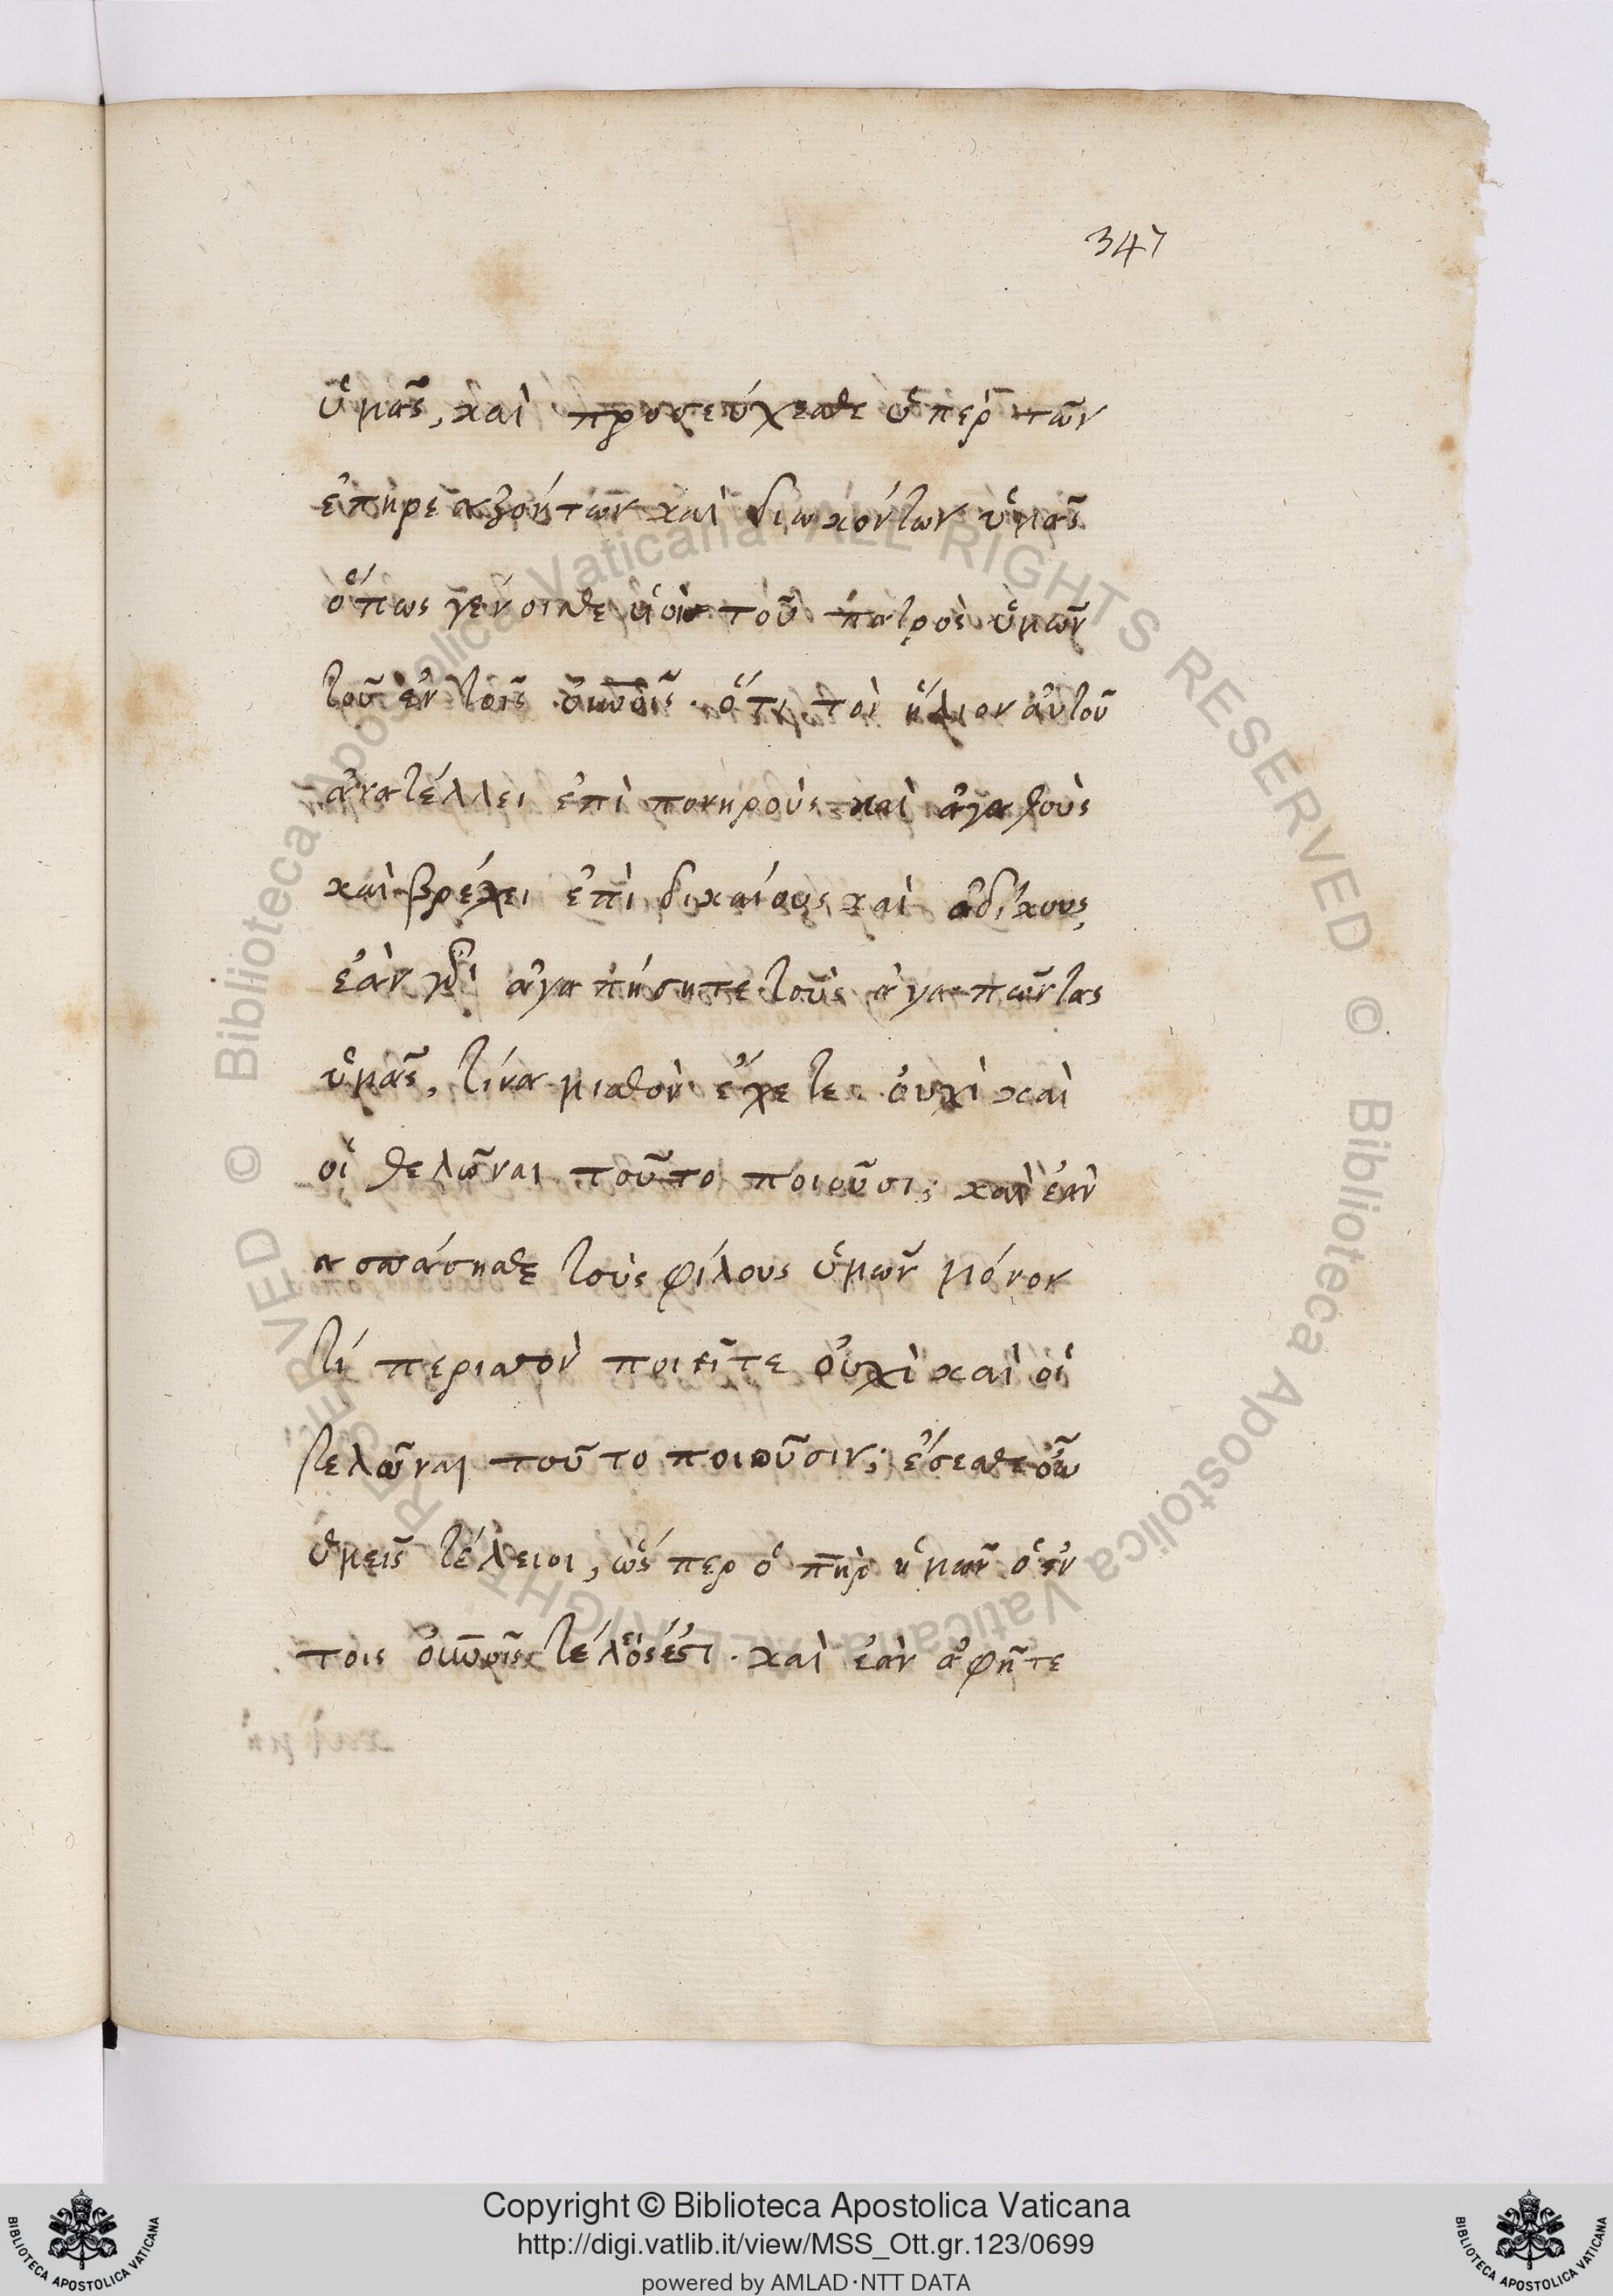 347
ὑμᾶς, καὶ προσεύχεσθε ὑπὲρ τῶν
ἐπηρεαζόντων καὶ διωκόντων ὑμᾶς
ὅπως γένοισθε υἱοὶ τοῦ πατρὸς ὑμῶν
τοῦ ἐν τοῖς οὐνοῖς. ὅτι τὸν ἥλιον αὐτοῦ
ἀνατέλλει ἐπὶ πονηροὺς καὶ ἀγαθοὺς
καὶ βρέχει ἐπὶ δικαίους καὶ ἀδίκους,
ἐὰν γὰρ ἀγαπήσητε τοὺς ἀγαπῶντας
ὑμᾶς, τίνα μισθὸν ἔχετε. οὐχὶ καὶ
οἱ θελῶναι τοῦτο ποιοῦσι; καὶ ἐὰν
ασπάσησθε τοὺς φίλους ὑμῶν μόνον
τί περισσὸν ποιεῖτε οὐχὶ καὶ οἱ
τελῶναι τοῦτο ποιοῦσιν; ἔσεσθε οὖν
ὑμεῖς τέλειοι, ὥσπερ ὁ πηρ ἡμῶν ὁ ἐν
τοις οὐνοῖς τέλειός ἐστι. καὶ ἐὰν ἀφῆτε
Copyright © Biblioteca Apostolica Vaticana
http://digi.vatlib.it/view/MSS_Ott.gr.123/0699
powered by AMLAD·NTT DATA
BIBLIOTECA APOSTOLICA VATICANA
BIBLIOTECA APOSTOLICA VATICANA
© Biblioteca Apostolica Vaticana ALL RIGHTS RESERVED © Biblioteca Apostolica Vaticana ALL RIGHTS RESERVED